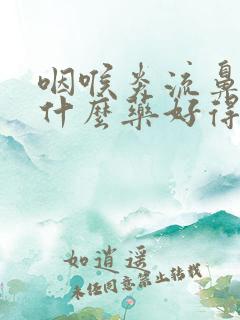 咽喉炎流鼻
什麼藥好得
如逍遥
未经同意禁止转载